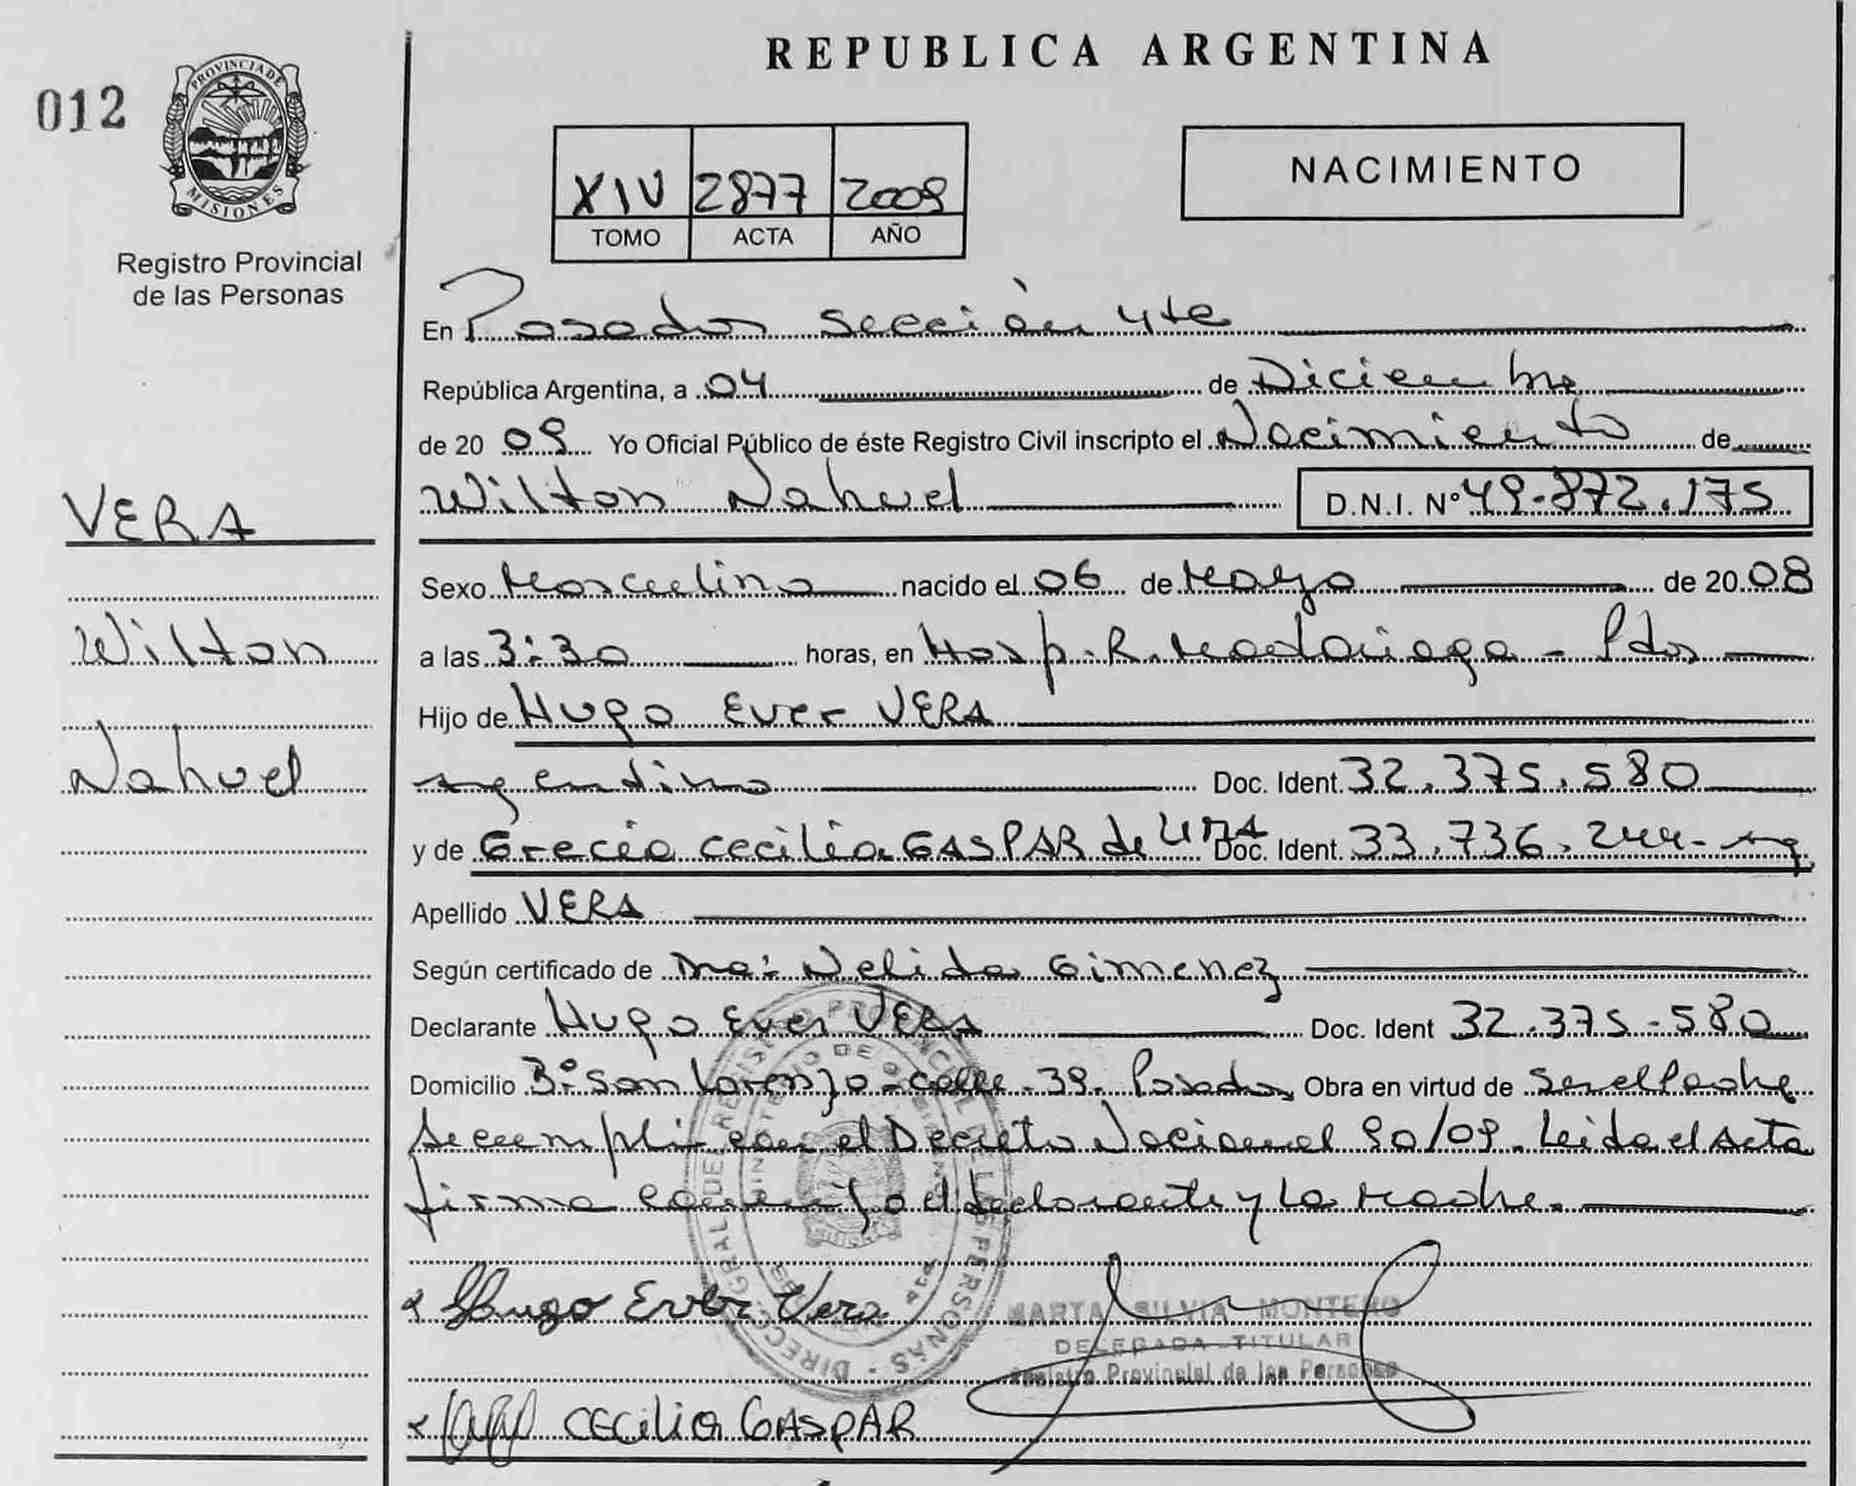 REPUBLICA ARGENTINA
012
PROVINCIA DE
MISIONES
Registro Provincial
de las Personas
XIV 2877 2009
TOMO ACTA AÑO
NACIMIENTO
En Posadas sección 4ta
República Argentina, a 04 de Diciembre
de 20 09 Yo Oficial Público de éste Registro Civil inscripto el Nacimiento de
Wilton Nahuel D.N.I. Nº 49.872.175
VERA
Wilton
Nahuel
Sexo Masculino nacido el 06 de Mayo de 20 08
a las 3:30 horas, en Hosp. R. Madariaga - Pdas
Hijo de Hugo Ever VERA
argentino Doc. Ident. 32.375.580
y de Grecia Cecilia GASPAR de Doc. Ident. 33.736.244 - arg
Apellido VERA
Según certificado de Ma: Nelida Gimenez
Declarante Hugo Ever VERA Doc. Ident 32.375.580
Domicilio Bº San Lorenzo - calle - 39 - Posadas Obra en virtud de ser el Padre
Se cumplió con el Decreto Nacional 90/09. Leida el Acta
firma conmigo el declarante y la Madre.
Hugo Ever Vera
MARTA SILVIA MONTERO
DELEGADA TITULAR
Registro Provincial de las Personas
CECiliA GASPAR